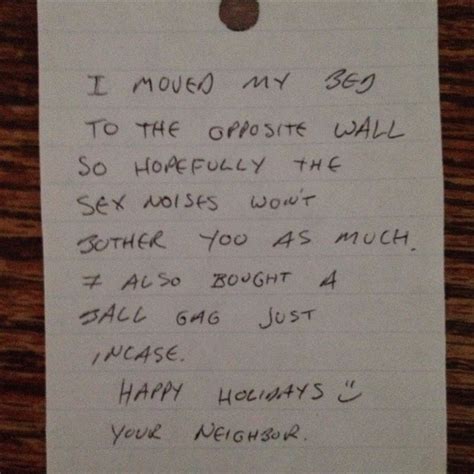 I MOVED MY BED
TO THE OPPOSITE WALL
SO HOPEFULLY THE
SEX NOISES WON'T
BOTHER YOU AS MUCH.
I ALSO BOUGHT A
BALL GAG JUST
INCASE.
HAPPY HOLIDAYS :)
YOUR NEIGHBOR.